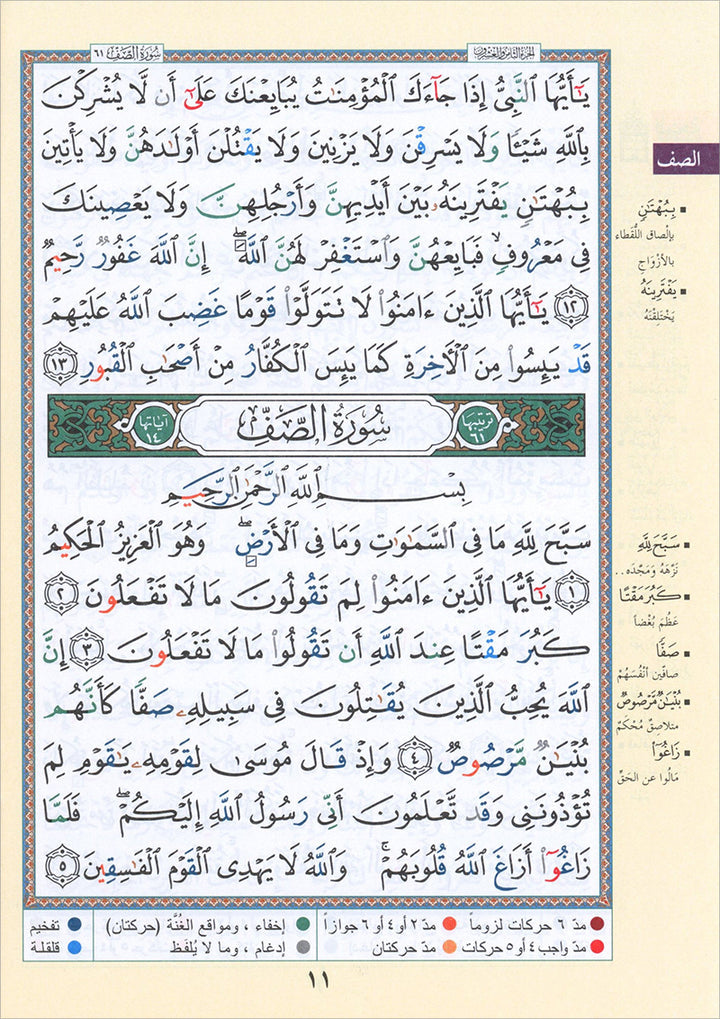 الجزء الثامن والعشرون
سُورَةُ الصَّفِّ ٦١
يَٰٓأَيُّهَا ٱلنَّبِىُّ إِذَا جَآءَكَ ٱلْمُؤْمِنَٰتُ يُبَايِعْنَكَ عَلَىٰٓ أَن لَّا يُشْرِكْنَ
بِٱللَّهِ شَيْـًٔا وَلَا يَسْرِقْنَ وَلَا يَزْنِينَ وَلَا يَقْتُلْنَ أَوْلَٰدَهُنَّ وَلَا يَأْتِينَ
بِبُهْتَٰنٍ يَفْتَرِينَهُۥ بَيْنَ أَيْدِيهِنَّ وَأَرْجُلِهِنَّ وَلَا يَعْصِينَكَ
فِى مَعْرُوفٍ ۙ فَبَايِعْهُنَّ وَٱسْتَغْفِرْ لَهُنَّ ٱللَّهَ ۖ إِنَّ ٱللَّهَ غَفُورٌ رَّحِيمٌ
١٢ يَٰٓأَيُّهَا ٱلَّذِينَ ءَامَنُوا۟ لَا تَتَوَلَّوْا۟ قَوْمًا غَضِبَ ٱللَّهُ عَلَيْهِمْ
قَدْ يَئِسُوا۟ مِنَ ٱلْءَاخِرَةِ كَمَا يَئِسَ ٱلْكُفَّارُ مِنْ أَصْحَٰبِ ٱلْقُبُورِ ١٣
ترتيبها ٦١ سُورَةُ الصَّفِّ آياتها ١٤
بِسْمِ ٱللَّهِ ٱلرَّحْمَٰنِ ٱلرَّحِيمِ
سَبَّحَ لِلَّهِ مَا فِى ٱلسَّمَٰوَٰتِ وَمَا فِى ٱلْأَرْضِ ۖ وَهُوَ ٱلْعَزِيزُ ٱلْحَكِيمُ
١ يَٰٓأَيُّهَا ٱلَّذِينَ ءَامَنُوا۟ لِمَ تَقُولُونَ مَا لَا تَفْعَلُونَ ٢
كَبُرَ مَقْتًا عِندَ ٱللَّهِ أَن تَقُولُوا۟ مَا لَا تَفْعَلُونَ ٣ إِنَّ
ٱللَّهَ يُحِبُّ ٱلَّذِينَ يُقَٰتِلُونَ فِى سَبِيلِهِۦ صَفًّا كَأَنَّهُم
بُنْيَٰنٌ مَّرْصُوصٌ ٤ وَإِذْ قَالَ مُوسَىٰ لِقَوْمِهِۦ يَٰقَوْمِ لِمَ
تُؤْذُونَنِى وَقَد تَّعْلَمُونَ أَنِّى رَسُولُ ٱللَّهِ إِلَيْكُمْ ۖ فَلَمَّا
زَاغُوٓا۟ أَزَاغَ ٱللَّهُ قُلُوبَهُمْ ۚ وَٱللَّهُ لَا يَهْدِى ٱلْقَوْمَ ٱلْفَٰسِقِينَ ٥
الصف
■ بِبُهْتَٰنٍ
بإلْصاق اللُّقَطاء
بالأَزْوَاجِ
■ يَفْتَرِينَهُ
يَخْتَلِقْنَهُ
■ سَبَّحَ لِلَّهِ
نَزَّهَهُ وَمَجَّدَه..
■ كَبُرَ مَقْتًا
عَظُمَ بُغْضاً
■ صَفًّا
صافّين أنْفُسَهُمْ
■ بُنْيَٰنٌ مَّرْصُوصٌ
متلاصِقٌ مُحْكَمٌ
■ زَاغُوٓا۟
مَالُوا عن الحَقِّ
● مدّ ٦ حركات لزوماً ● مدّ ٢ أو ٤ أو ٦ جوازاً ● إخفاء ، ومواقع الغُنَّة (حركتان) ● تفخيم
● مدّ واجب ٤ أو ٥ حركات ● مدّ حركتان ● إدغام ، وما لا يُلفَظ ● قلقلة
١١